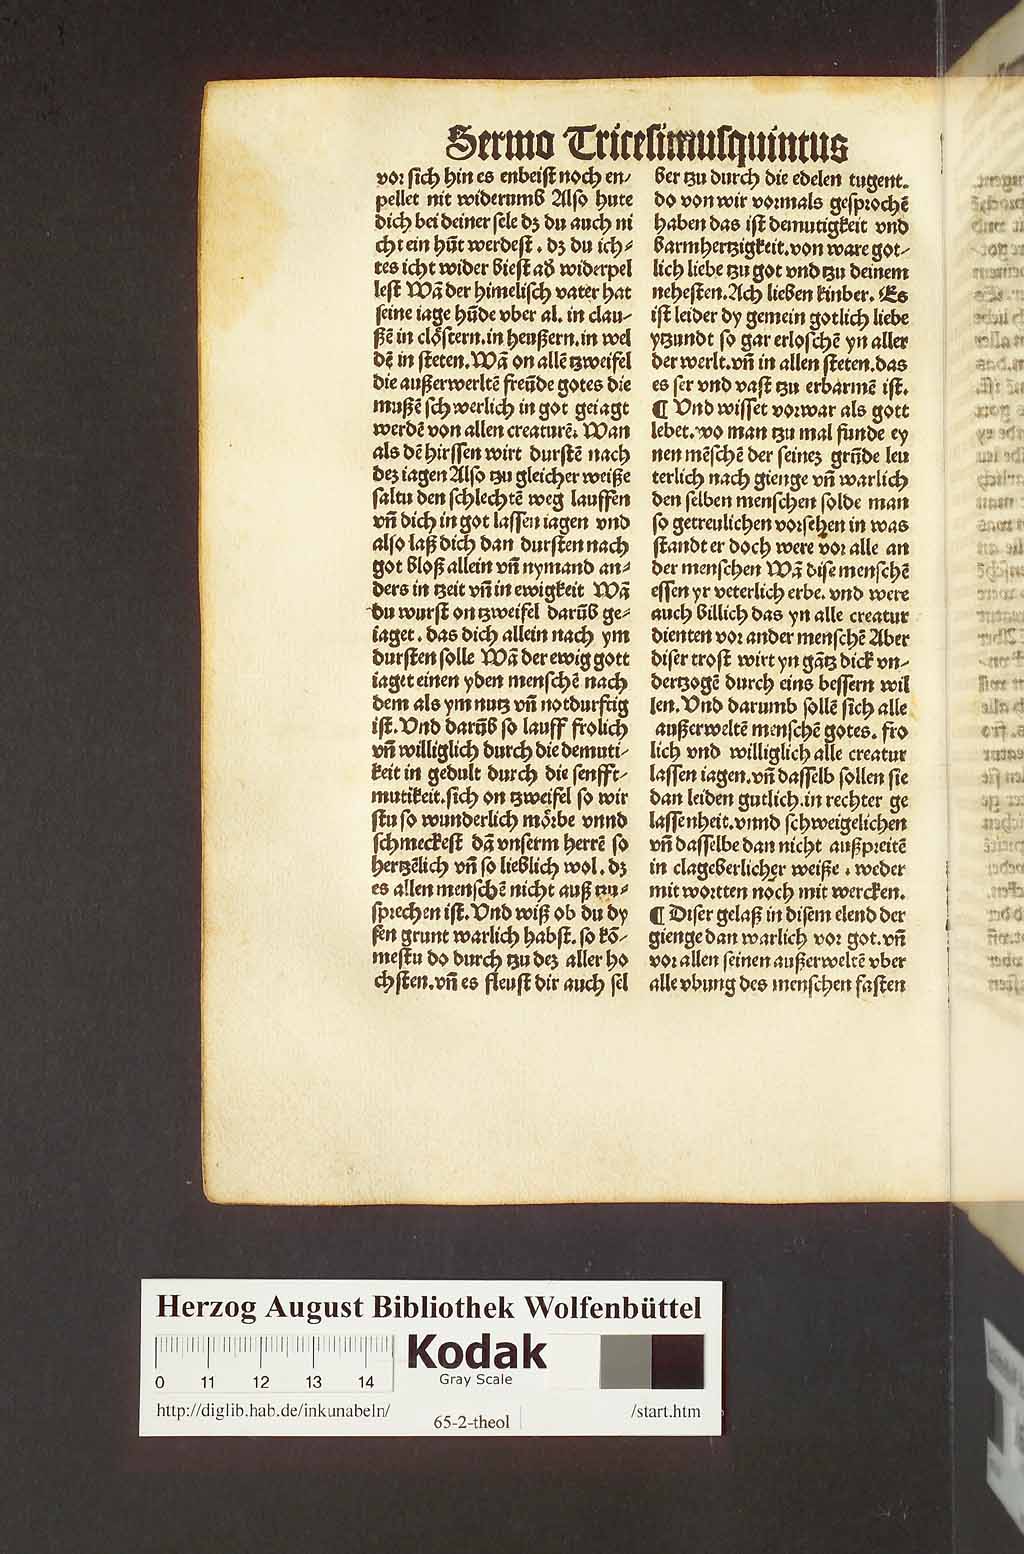 Sermo Tricesimusquintus
vor sich hin es enbeist noch en⸗
pellet nit widerumb Also hute
dich bei deiner sele dz du auch ni
cht ein hūt werdest. dz du ich⸗
tes icht wider biest ad widerpel
lest Wā der himelisch vater hat
seine iage hūde vber al. in clau⸗
ßē in clöstern. in heußern. in wel
dē in steten. Wā on allē tzweifel
die außerwerltē freūde gotes die
mußē schwerlich in got geiagt
werdē von allen creaturē. Wan
als dē hirssen wirt durstē nach
dez iagen Also tzu gleicher weiße
saltu den schlechtē weg lauffen
vn̄ dich in got lassen iagen vnd
also laß dich dan dursten nach
got bloß allein vn̄ nymand an⸗
ders in tzeit vn̄ in ewigkeit Wā
du wurst on tzweifel darūb ge⸗
iaget. das dich allein nach ym
dursten solle Wā der ewig gott
iaget einen yden menschē nach
dem als ym nutz vn̄ notdurftig
ist. Vnd darūb so lauff frolich
vn̄ williglich durch die demuti⸗
keit in gedult durch die senfft⸗
mutikeit. sich on tzweifel so wir
stu so wunderlich mörbe vnnd
schmeckest dā vnserm herrē so
hertzēlich vn̄ so lieblich wol. dz
es allen menschē nicht auß tzu⸗
sprechen ist. Vnd wiß ob du dy
sen grunt warlich habst. so kō⸗
mestu do durch tzu dez aller ho
chsten. vn̄ es fleust dir auch sel
ber tzu durch die edelen tugent.
do von wir vormals gesprochē
haben das ist demutigkeit vnd
barmhertzigkeit. von ware got⸗
lich liebe tzu got vnd tzu deinem
nehesten. Ach lieben kinber. Es
ist leider dy gemein gotlich liebe
ytzundt so gar erloschē yn aller
der werlt. vn̄ in allen steten. das
es ser vnd vast tzu erbarmē ist.
¶ Vnd wisset vorwar als gott
lebet. wo man tzu mal funde ey
nen mēschē der seinez grūde leu
terlich nach gienge vn̄ warlich
den selben menschen solde man
so getreulichen vorsehen in was
standt er doch were vor alle an
der menschen Wā dise menschē
essen yr veterlich erbe. vnd were
auch billich das yn alle creatur
dienten vor ander menschē Aber
diser trost wirt yn gātz dick vn⸗
dertzogē durch eins bessern wil
len. Vnd darumb sollē sich alle
außerweltē menschē gotes. fro
lich vnd williglich alle creatur
lassen iagen. vn̄ dasselb sollen sie
dan leiden gutlich. in rechter ge
lassenheit. vnnd schweigelichen
vn̄ dasselbe dan nicht außpreitē
in clageberlicher weiße. weder
mit wortten noch mit wercken.
¶ Diser gelaß in disem elend der
gienge dan warlich vor got. vn̄
vor allen seinen außerweltē vber
alle vbung des menschen fasten
Herzog August Bibliothek Wolfenbüttel
Kodak
Gray Scale
0 11 12 13 14
http://diglib.hab.de/inkunabeln/
65-2-theol
/start.htm